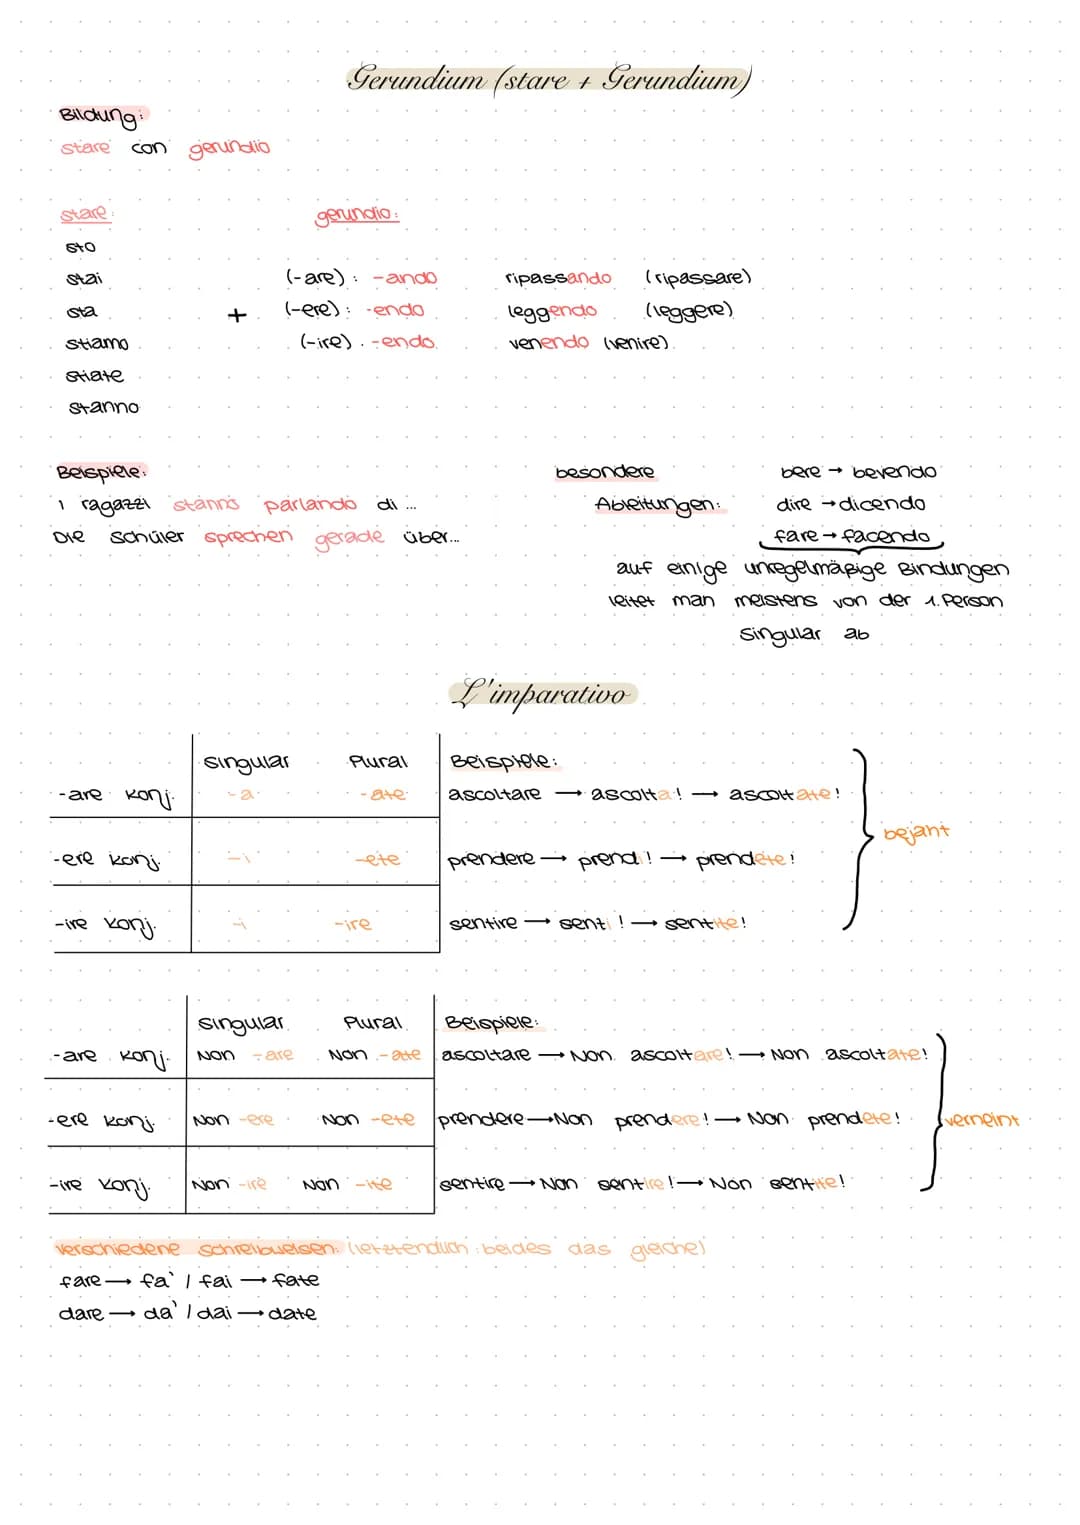 Gerundium (stare + Gerundium)
Bildung:
stare con gerundio
stare: gerundio:
sto
stai (-are): -ando ripassando (ripassare)
sta + (-ere): -endo leggendo (leggere)
stiamo (-ire). -endo. venendo (venire)
stiate
stanno
Beispiele: besondere bere → bevendo
i ragazzi stanno parlando di ... Ableitungen: dire → dicendo
Die Schüler sprechen gerade über... fare → facendo
auf einige unregelmäßige Bindungen
leitet man meistens von der 1. Person
Singular ab
L'imparativo
Singular Plural Beispiele:
-are Konj. -a -ate ascoltare → ascolta! → ascoltate!
bejaht
-ere Konj. -i -ete prendere → prendi! → prendete!
-ire Konj. -i -ire sentire → senti! → sentite!
Singular Plural Beispiele:
-are Konj. Non -are Non -ate ascoltare → Non ascoltare! → Non ascoltate!
-ere Konj. Non -ere Non -ete prendere → Non prendere! → Non prendete! verneint
-ire Konj. Non -ire Non -ite sentire → Non sentire! → Non sentite!
verschiedene Schreibweisen: (letztendlich beides das gleiche)
fare → fa` / fai → fate
dare → da` / dai → date